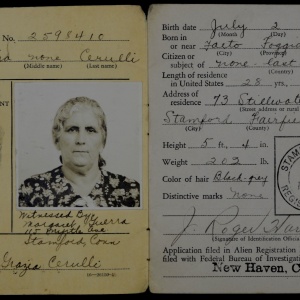 No 2598410
none Cerulli
(Middle name) (Last name)
Witnessed Bye
Margaret
Stamford, Conn
Grazia Cerulli
Birth date July 2
(Month) (Day)
Born in
or near Faeto Foggia
(City) (Province)
Citizen or
subject of none-last
(Country)
Length of residence
in United States 28 yrs.
Address of
residence 73 Stillwater
(Street address or rural
Stamford Fairfie
(City) (County)
Height 5 ft., 4 in.
Weight 202 lb.
Color of hair Black-grey
Distinctive marks none
J. Roger
(Signature of Identification Offic
Application filed in Alien Registration
with Federal Bureau of Investigat
New Haven, C
STAM
REGIS